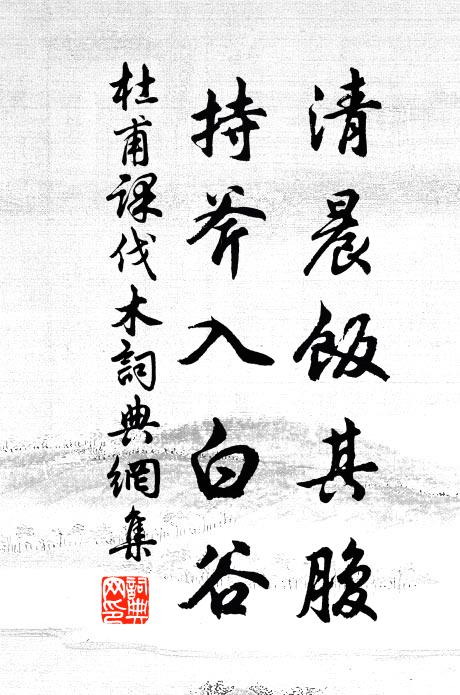 清晨飯其腹
持斧入白谷
杜甫課伐木詞典網集
詞典網印